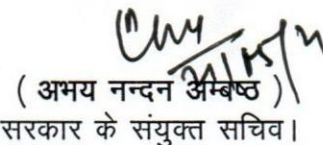 ( अभय नन्दन अम्बष्ठ )
सरकार के संयुक्त सचिव।